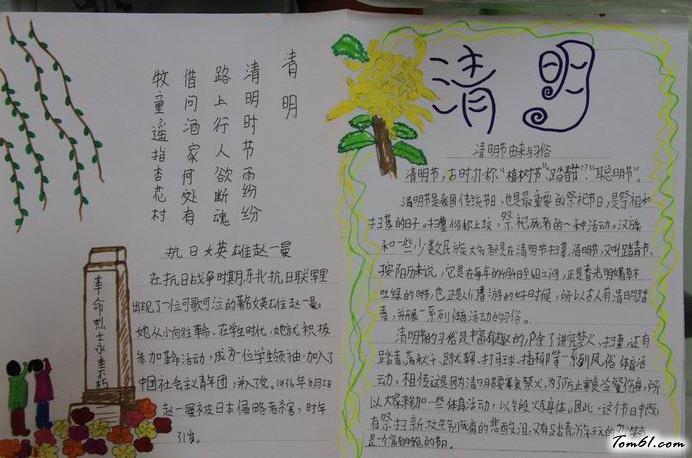 清明
清明时节雨纷纷
路上行人欲断魂
借问酒家何处有
牧童遥指杏花村
抗日女英雄赵一曼
在抗日战争时期,东北抗日联军里
出现了一位可歌可泣的女英雄赵一曼。
她从小向往革命,在学生时代,她就积极
参加革命活动,成为一位学生领袖,加入了
中国社会主义青年团,并入党。1936年8月2日
赵一曼被日本侵略者杀害,时年
31岁。
革命烈士永垂不朽
清明
清明节由来与习俗
清明节,古时也称"植树节""踏青节""聪明节"。
清明节是我国传统节日,也是最重要的祭祀节日,是祭祖和
扫墓的日子。扫墓俗称上坟,祭祀死者的一种活动。汉族
和一些少数民族大多都是在清明节扫墓。清明节,又叫踏青节,
按阳历来说,它是在每年的4月4日至6日之间,正是春光明媚草木
吐绿的时节,也正是人们春游的好时候,所以古人有清明踏
青,并开展一系列体育活动的习俗。
清明节的习俗是丰富有趣的,除了讲究禁火、扫墓,还有
踏青、荡秋千、蹴鞠、打马球、插柳等一系列风俗体育活
动,相传这是因为清明节要寒食禁火,为了防止寒食冷餐伤身,所
以大家来参加一些体育活动,以锻炼身体。因此,这个节日中既
有祭扫新坟生别死离的悲酸泪,又有踏青游玩的欢笑声
是一个富有特色的节日。
Tom61.com